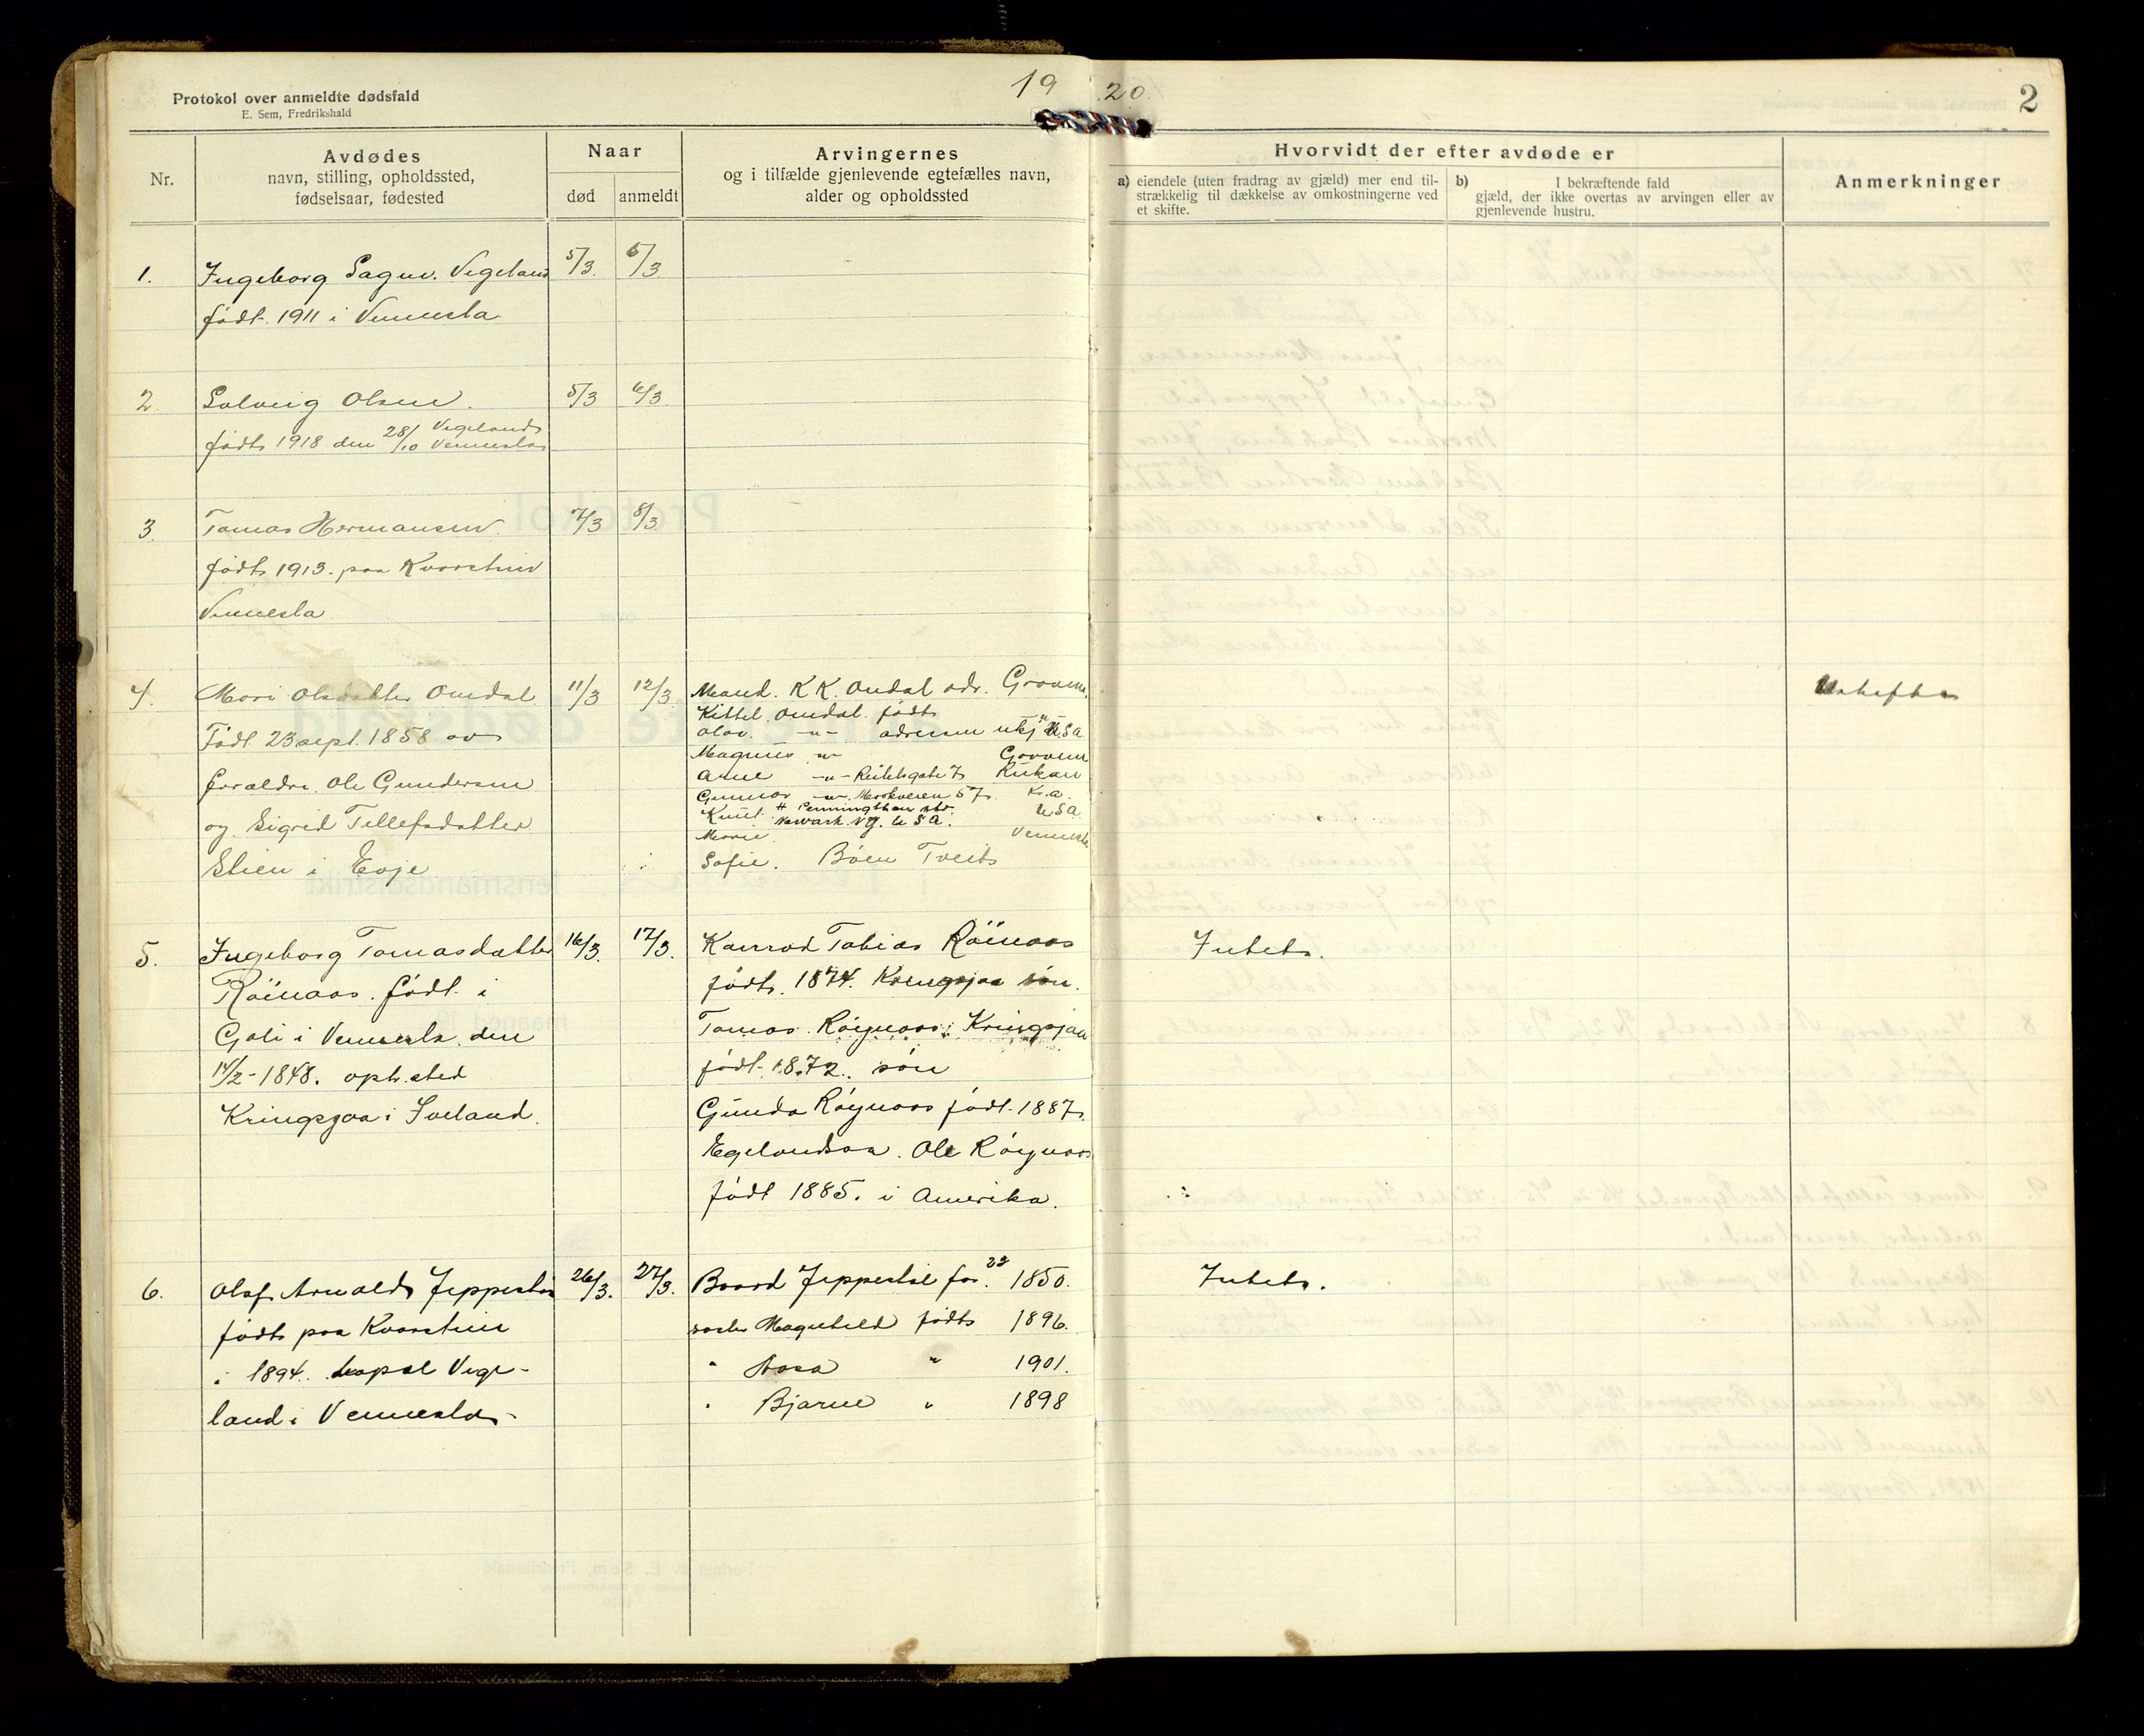 Protokol over anmeldte dødsfald
E. Sem, Fredrikshald
19 20.
2
Nr.
Avdødes
navn, stilling, opholdssted,
fødselsaar, fødested
Naar
død
anmeldt
Arvingernes
og i tilfælde gjenlevende egtefælles navn,
alder og opholdssted
Hvorvidt der efter avdøde er
a) eiendele (uten fradrag av gjæld) mer end til-
strækkelig til dækkelse av omkostningerne ved
et skifte.
b) I bekræftende fald
gjæld, der ikke overtas av arvingen eller av
gjenlevende hustru.
Anmerkninger
1. Ingeborg Vegeland 5/3. 6/3
født 1911 i Vennesla
2. Solveig Olsen. 5/3 6/3
født 1918 den 28/10 Vegeland
Vennesla
3. Tomas Hermansen. 7/3 8/3
født 1913. paa Kvarstein
Vennesla
4. Mari Olsdatter Omdal 11/3 12/3
Født 23 sept. 1858 av
foraldre. Ole Gundersen
og Sigrid Tellefsdatter
i Evje
Mand. K K. Omdal adr. Groven.
Kittel. Omdal. født
Olav. -"- adressen ukj. USA
Magnus -"- Groven
Arne -"- 7 Rukan
Gunnar -"- 57. Kr.a.
Knut. Penningthan str. USA
Newark. N.J. U S A.
Marie. Vennesla
Sofie. Böen Tveit
5. Ingeborg Tomasdatter 16/3. 17/3.
Röinaas. født i
i Vennesla den
1848. oph.sted
Kringsjaa i Iveland.
Konrad Tobias Röinaas
født. 1874. Kringsjaa søn.
Tomas. Röynaas Kringsjaa
født 1872. søn
Gunda Röynaas født 1887.
Egelandsaa. Ole Röynaas
født 1885. i Amerika.
Intet.
6. Olaf Arnold Jeppestøl 26/3. 27/3.
født paa Kvarstein
i 1894. Vege-
land i Vennesla
Baard Jeppestøl far. 1850.
Magnhild født 1896.
" Aasa " 1901.
" Bjarne " 1898
Intet.